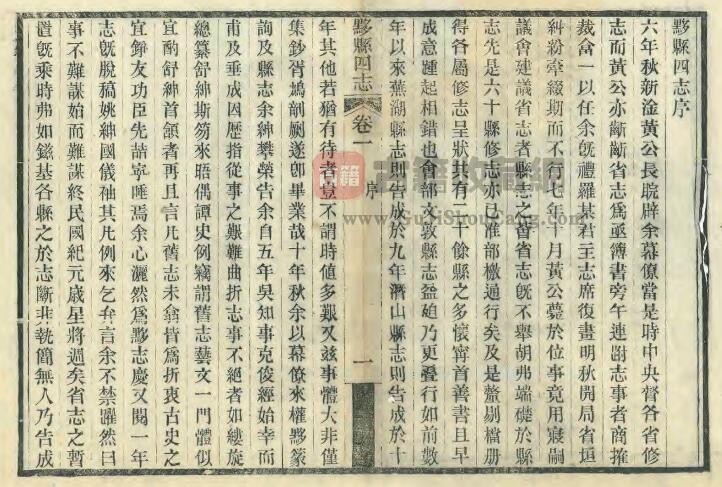 黟縣四志序
六年秋新淦黃公長皖辟余幕僚當是時中央督各省修
志而黃公亦斷斷省志爲亟簿書旁午連跗志事者商搉
裁畣一以任余旣禮羅某君主志席復畫明秋開局省垣
糾紛牽綴期而不行七年十月黃公薨於位事竟用寢嗣
議會建議省志者縣志之督省志旣不舉胡弗端礎於縣
志先是六十縣修志亦已准部檄通行矣及是釐剔檔册
得各屬修志呈狀共有二十餘縣之多懷甯首善書且早
成意踵起相錯也會部文敦縣志益廹乃更疊行如前數
年以來蕪湖縣志則告成於九年潛山縣志則告成於十
黟縣四志
卷一
序
一
年其他若猶有待者豈不謂時値多艱又茲事體大非僅
集鈔胥鳩剞劂遂卽畢業哉十年秋余以幕僚來權黟篆
詢及縣志余紳攀榮告余自五年吳知事克俊經始幸而
甫及垂成因歷指從事之艱難曲折志事不絕者如縷旋
總纂舒紳斯笏來晤偶譚史例竊謂舊志藝文一門體似
宜酌舒紳首頷者再且言凡舊志未翕皆爲折衷古史之
宜錚友功臣先喆寧唾焉余心灑然爲黟志慶又閱一年
志旣脫稿姚紳國儀袖其凡例來乞弁言余不禁躍然曰
事不難謀始而難謀終民國紀元歲星將週矣省志之暫
置旣乘時弗如鎡基各縣之於志斷非執簡無人乃告成
古籍收藏網
www.GuJiShouCang.com
古籍